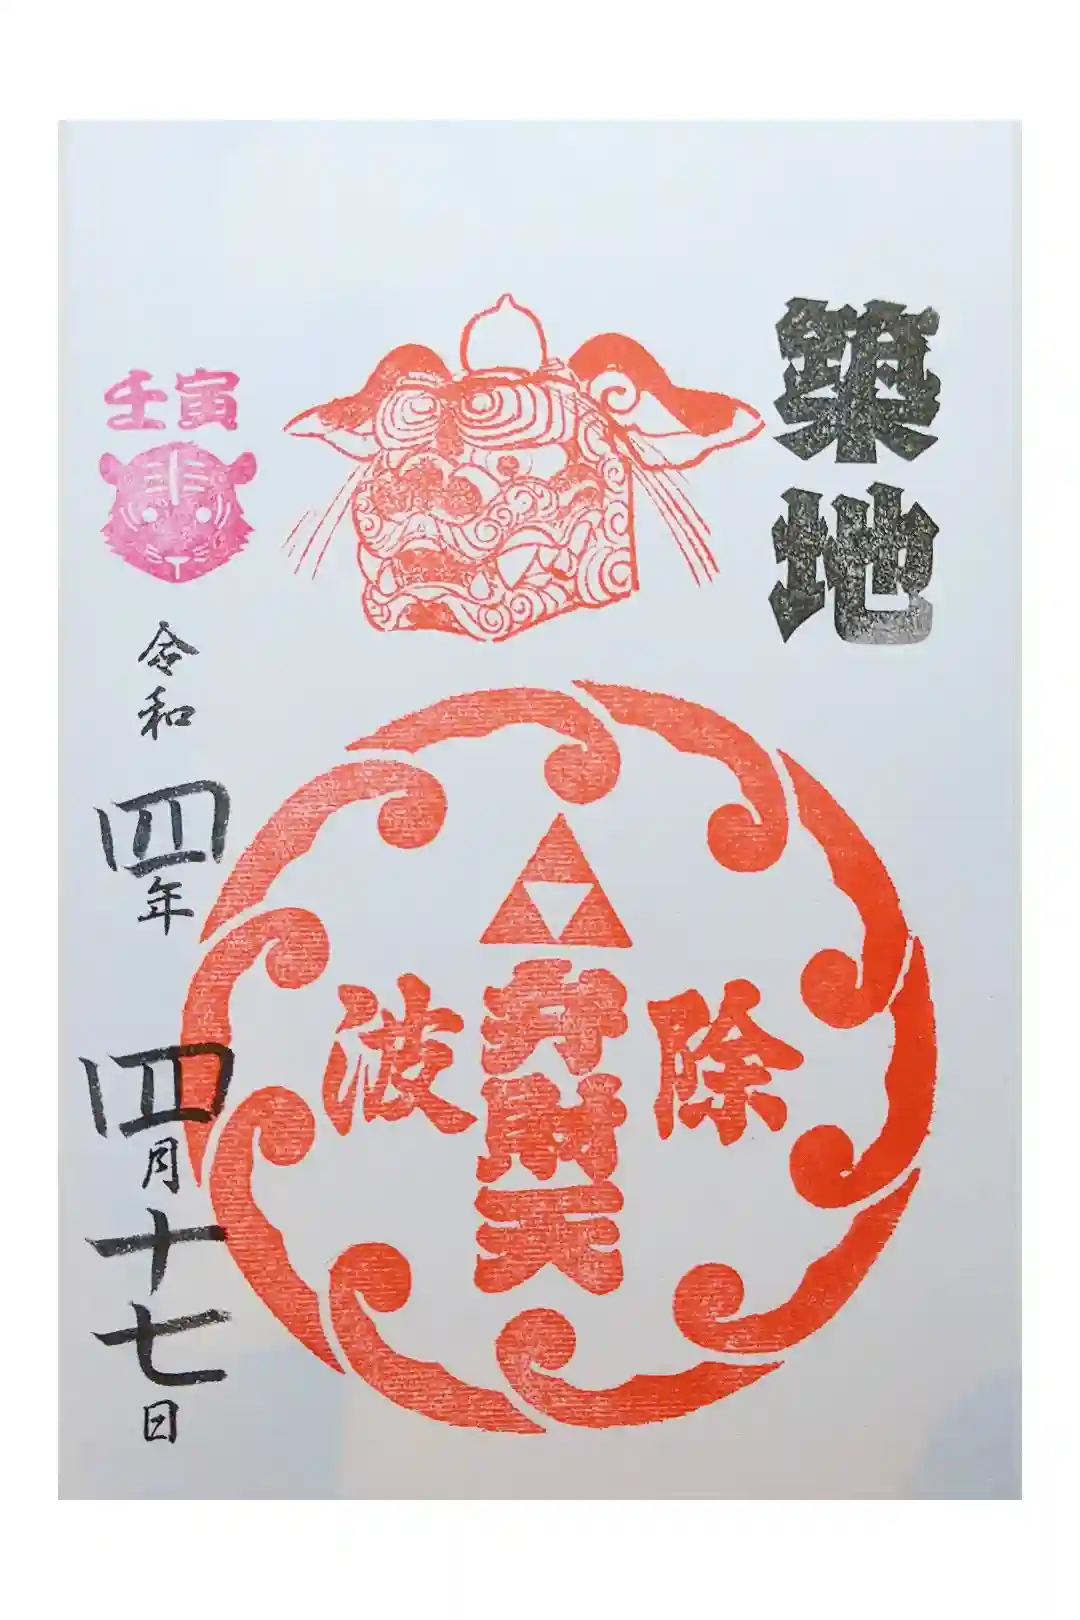 築地
除
弁財天
波
壬寅
令和四年四月十七日